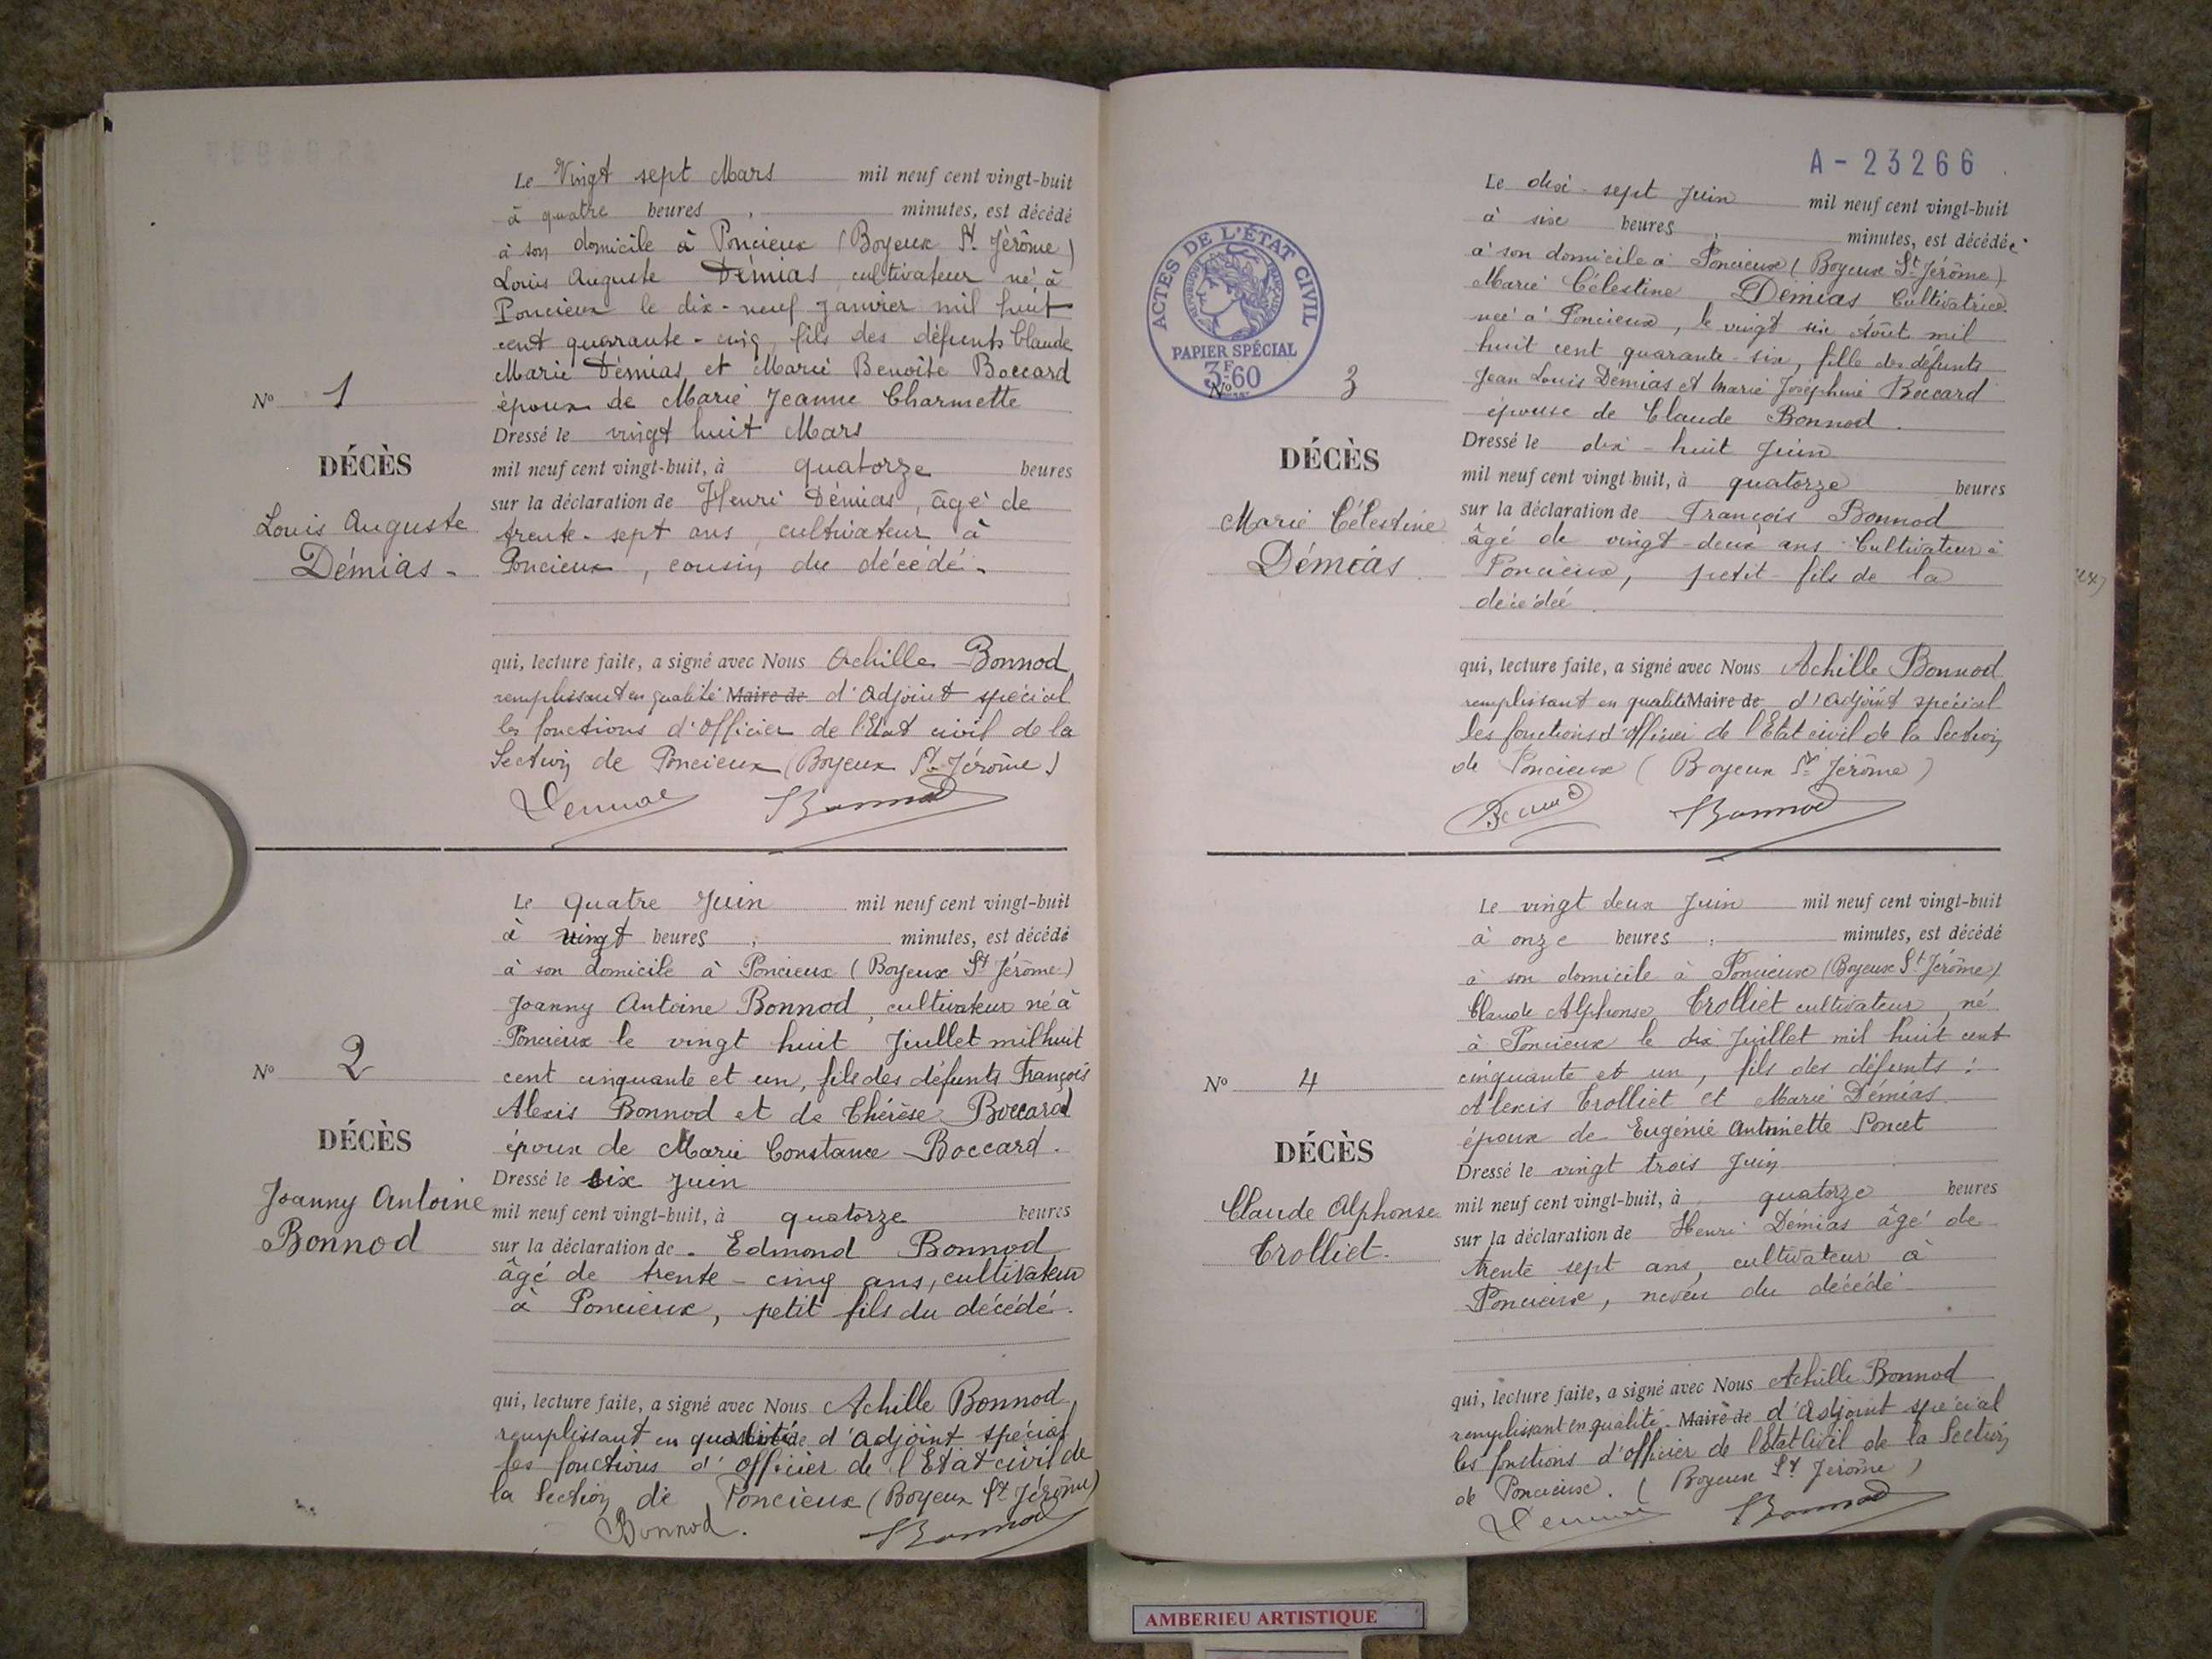 Le Vingt sept Mars mil neuf cent vingt-huit
à quatre heures , minutes, est décédé
à son domicile à Poncieux (Boyeux St. Jérôme)
Louis Auguste Démias, cultivateur né à
Poncieux le dix-neuf Janvier mil huit
cent quarante-cinq, fils des défunts Claude
Marie Démias, et Marie Benoîte Boccard
époux de Marie Jeanne Charmette
No 1
DÉCÈS
Louis Auguste
Démias.
Dressé le vingt huit Mars
mil neuf cent vingt-huit, à quatorze heures
sur la déclaration de Henri Démias, âgé de
trente-sept ans, cultivateur à
Poncieux, cousin du décédé.
qui, lecture faite, a signé avec Nous Achille Bonnod
remplissant en qualité Maire de d'adjoint spécial
les fonctions d'Officier de l'Etat civil de la
Section de Poncieux (Boyeux St. Jérôme)
Bonnod
Le quatre Juin mil neuf cent vingt-huit
à vingt heures , minutes, est décédé
à son domicile à Poncieux (Boyeux St Jérôme)
Joanny Antoine Bonnod, cultivateur né à
Poncieux le vingt huit Juillet mil huit
cent cinquante et un, fils des défunts François
Alexis Bonnod et de Thérèse Boccard
époux de Marie Constance Boccard.
No 2
DÉCÈS
Joanny Antoine
Bonnod
Dressé le six juin
mil neuf cent vingt-huit, à quatorze heures
sur la déclaration de Edmond Bonnod
âgé de trente-cinq ans, cultivateur
à Poncieux, petit fils du décédé.
qui, lecture faite, a signé avec Nous Achille Bonnod,
remplissant en qualité d'adjoint spécial
les fonctions d'Officier de l'Etat civil de
la Section de Poncieux (Boyeux St Jérôme)
Bonnod. Bonnod
A-23266
ACTES DE L'ÉTAT CIVIL
RÉPUBLIQUE FRANÇAISE
PAPIER SPÉCIAL
3F60
Le dix-sept Juin mil neuf cent vingt-huit
à six heures , minutes, est décédée
à son domicile à Poncieux (Boyeux St Jérôme)
Marie Célestine Démias Cultivatrice
née à Poncieux, le vingt six Août mil
huit cent quarante-six, fille des défunts
Jean Louis Démias et Marie Joséphine Boccard
épouse de Claude Bonnod.
No 3
DÉCÈS
Marie Célestine
Démias
Dressé le dix-huit Juin
mil neuf cent vingt-huit, à quatorze heures
sur la déclaration de François Bonnod
âgé de vingt-deux ans Cultivateur à
Poncieux, petit-fils de la
décédée.
qui, lecture faite, a signé avec Nous Achille Bonnod
remplissant en qualité Maire de d'adjoint spécial
les fonctions d'officier de l'Etat civil de la Section
de Poncieux (Boyeux St Jérôme)
Bonnod
Le vingt deux Juin mil neuf cent vingt-huit
à onze heures , minutes, est décédé
à son domicile à Poncieux (Boyeux St Jérôme)
Claude Alphonse Trolliet cultivateur, né
à Poncieux le dix Juillet mil huit cent
cinquante et un, fils des défunts :
Alexis Trolliet et Marie Démias
époux de Eugénie Antoinette Poncet
No 4
DÉCÈS
Claude Alphonse
Trolliet.
Dressé le vingt trois Juin
mil neuf cent vingt-huit, à quatorze heures
sur la déclaration de Henri Démias âgé de
trente sept ans, cultivateur à
Poncieux, neveu du décédé
qui, lecture faite, a signé avec Nous Achille Bonnod
remplissant en qualité Maire de d'adjoint spécial
les fonctions d'officier de l'Etat Civil de la Section
de Poncieux. (Boyeux St Jérôme)
Bonnod
AMBERIEU ARTISTIQUE